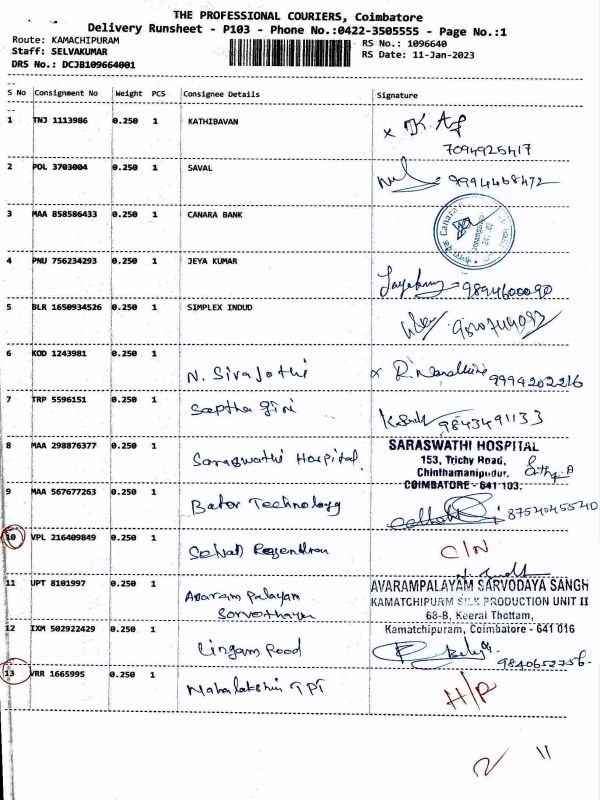 THE PROFESSIONAL COURIERS, Coimbatore
Delivery Runsheet - P103 - Phone No.:0422-3505555 - Page No.:1
Route: KAMACHIPURAM RS No.: 1096640
Staff: SELVAKUMAR RS Date: 11-Jan-2023
DRS No.: DCJB109664001
S No Consignment No Weight PCS Consignee Details Signature
1 TNJ 1113986 0.250 1 KATHIBAVAN x K.A
7094925417
2 POL 3703004 0.250 1 SAVAL 9994468472
3 MAA 858586433 0.250 1 CANARA BANK
4 PNU 756234293 0.250 1 JEYA KUMAR
Jayakumar 9894600090
5 BLR 1650934526 0.250 1 SIMPLEX INDUD
6 KOD 1243981 0.250 1 N. Sivajothi x R. Nandhini 9994202216
7 TRP 5596151 0.250 1 Saptha giri 9843491133
8 MAA 298876377 0.250 1 Saraswathi Hospital
SARASWATHI HOSPITAL
153, Trichy Road,
Chinthamanipudur,
COIMBATORE - 641 103.
9 MAA 567677263 0.250 1 Bator Technology 8754045540
10 VPL 216409849 0.250 1 Rajendran C/N
11 UPT 8101997 0.250 1 Avaram palayam
AVARAMPALAYAM SARVODAYA SANGH
KAMATCHIPURM SILK PRODUCTION UNIT II
68-B, Keerai Thottam,
Kamatchipuram, Coimbatore - 641 016
12 IXM 502922429 0.250 1 Lingam food 9840652756
13 VRR 1665995 0.250 1 Mahalakshmi TPT H/R
2 11